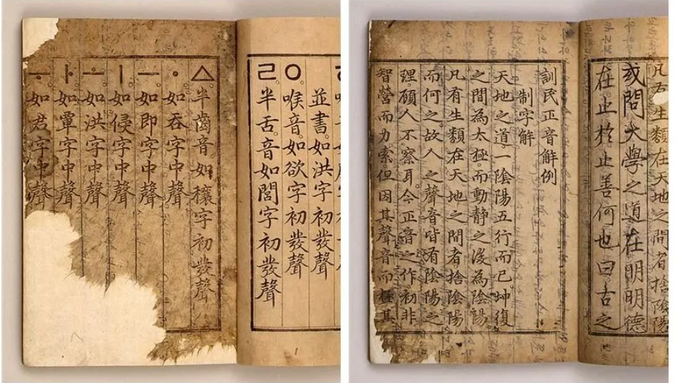 並書如洪字初發聲
ㅇ喉音如欲字初發聲
ㄹ半舌音如閭字初發聲
△半齒音如穰字初發聲
・如呑字中聲
ㅡ如即字中聲
ㅣ如侵字中聲
ㅗ如洪字中聲
ㅏ如覃字中聲
ㅜ如君字中聲
凡有生類在天地之間者捨陰陽
或問大學之道在明明德
在止於止善何也曰古之
訓民正音解例
制字解
天地之道一陰陽五行而已坤復
之間為太極而動靜之後為陰陽
凡有生類在天地之間者捨陰陽
而何之故人之聲音皆有陰陽之
理顧人不察耳今正音之作初非
智營而力索但因其聲音而極其